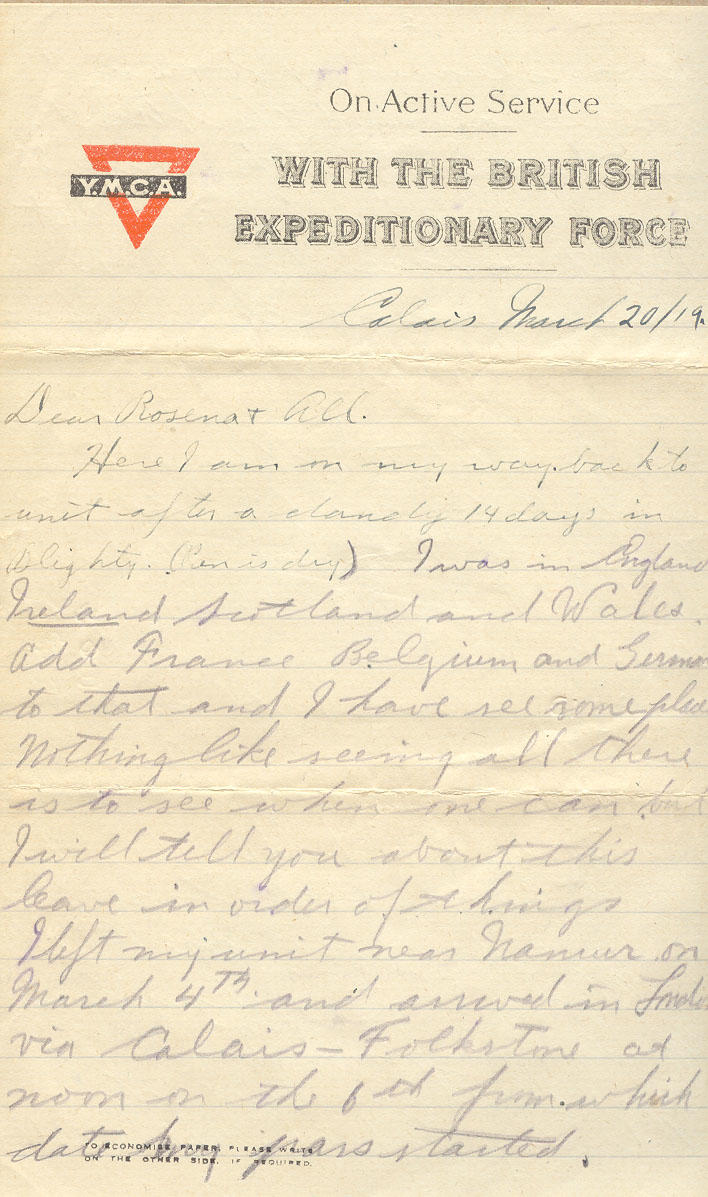 On Active Service
WITH THE BRITISH
EXPEDITIONARY FORCE
Y.M.C.A.
Calais March 20/19.
Dear Rosena + All.
Here I am on my way back to
unit after a dandy 14 days in
Blighty. (Pen is dry) I was in England
Ireland Scotland and Wales.
Add France Belgium and German
to that and I have see some place
Nothing like seeing all there
is to see when one can but
I will tell you about this
leave in order of things
I left my unit near Namur on
March 4TH and arrived in London
via Calais - Folkstone at
noon on the 6th from which
date my started.
TO ECONOMISE PAPER, PLEASE WRITE
ON THE OTHER SIDE, IF REQUIRED.